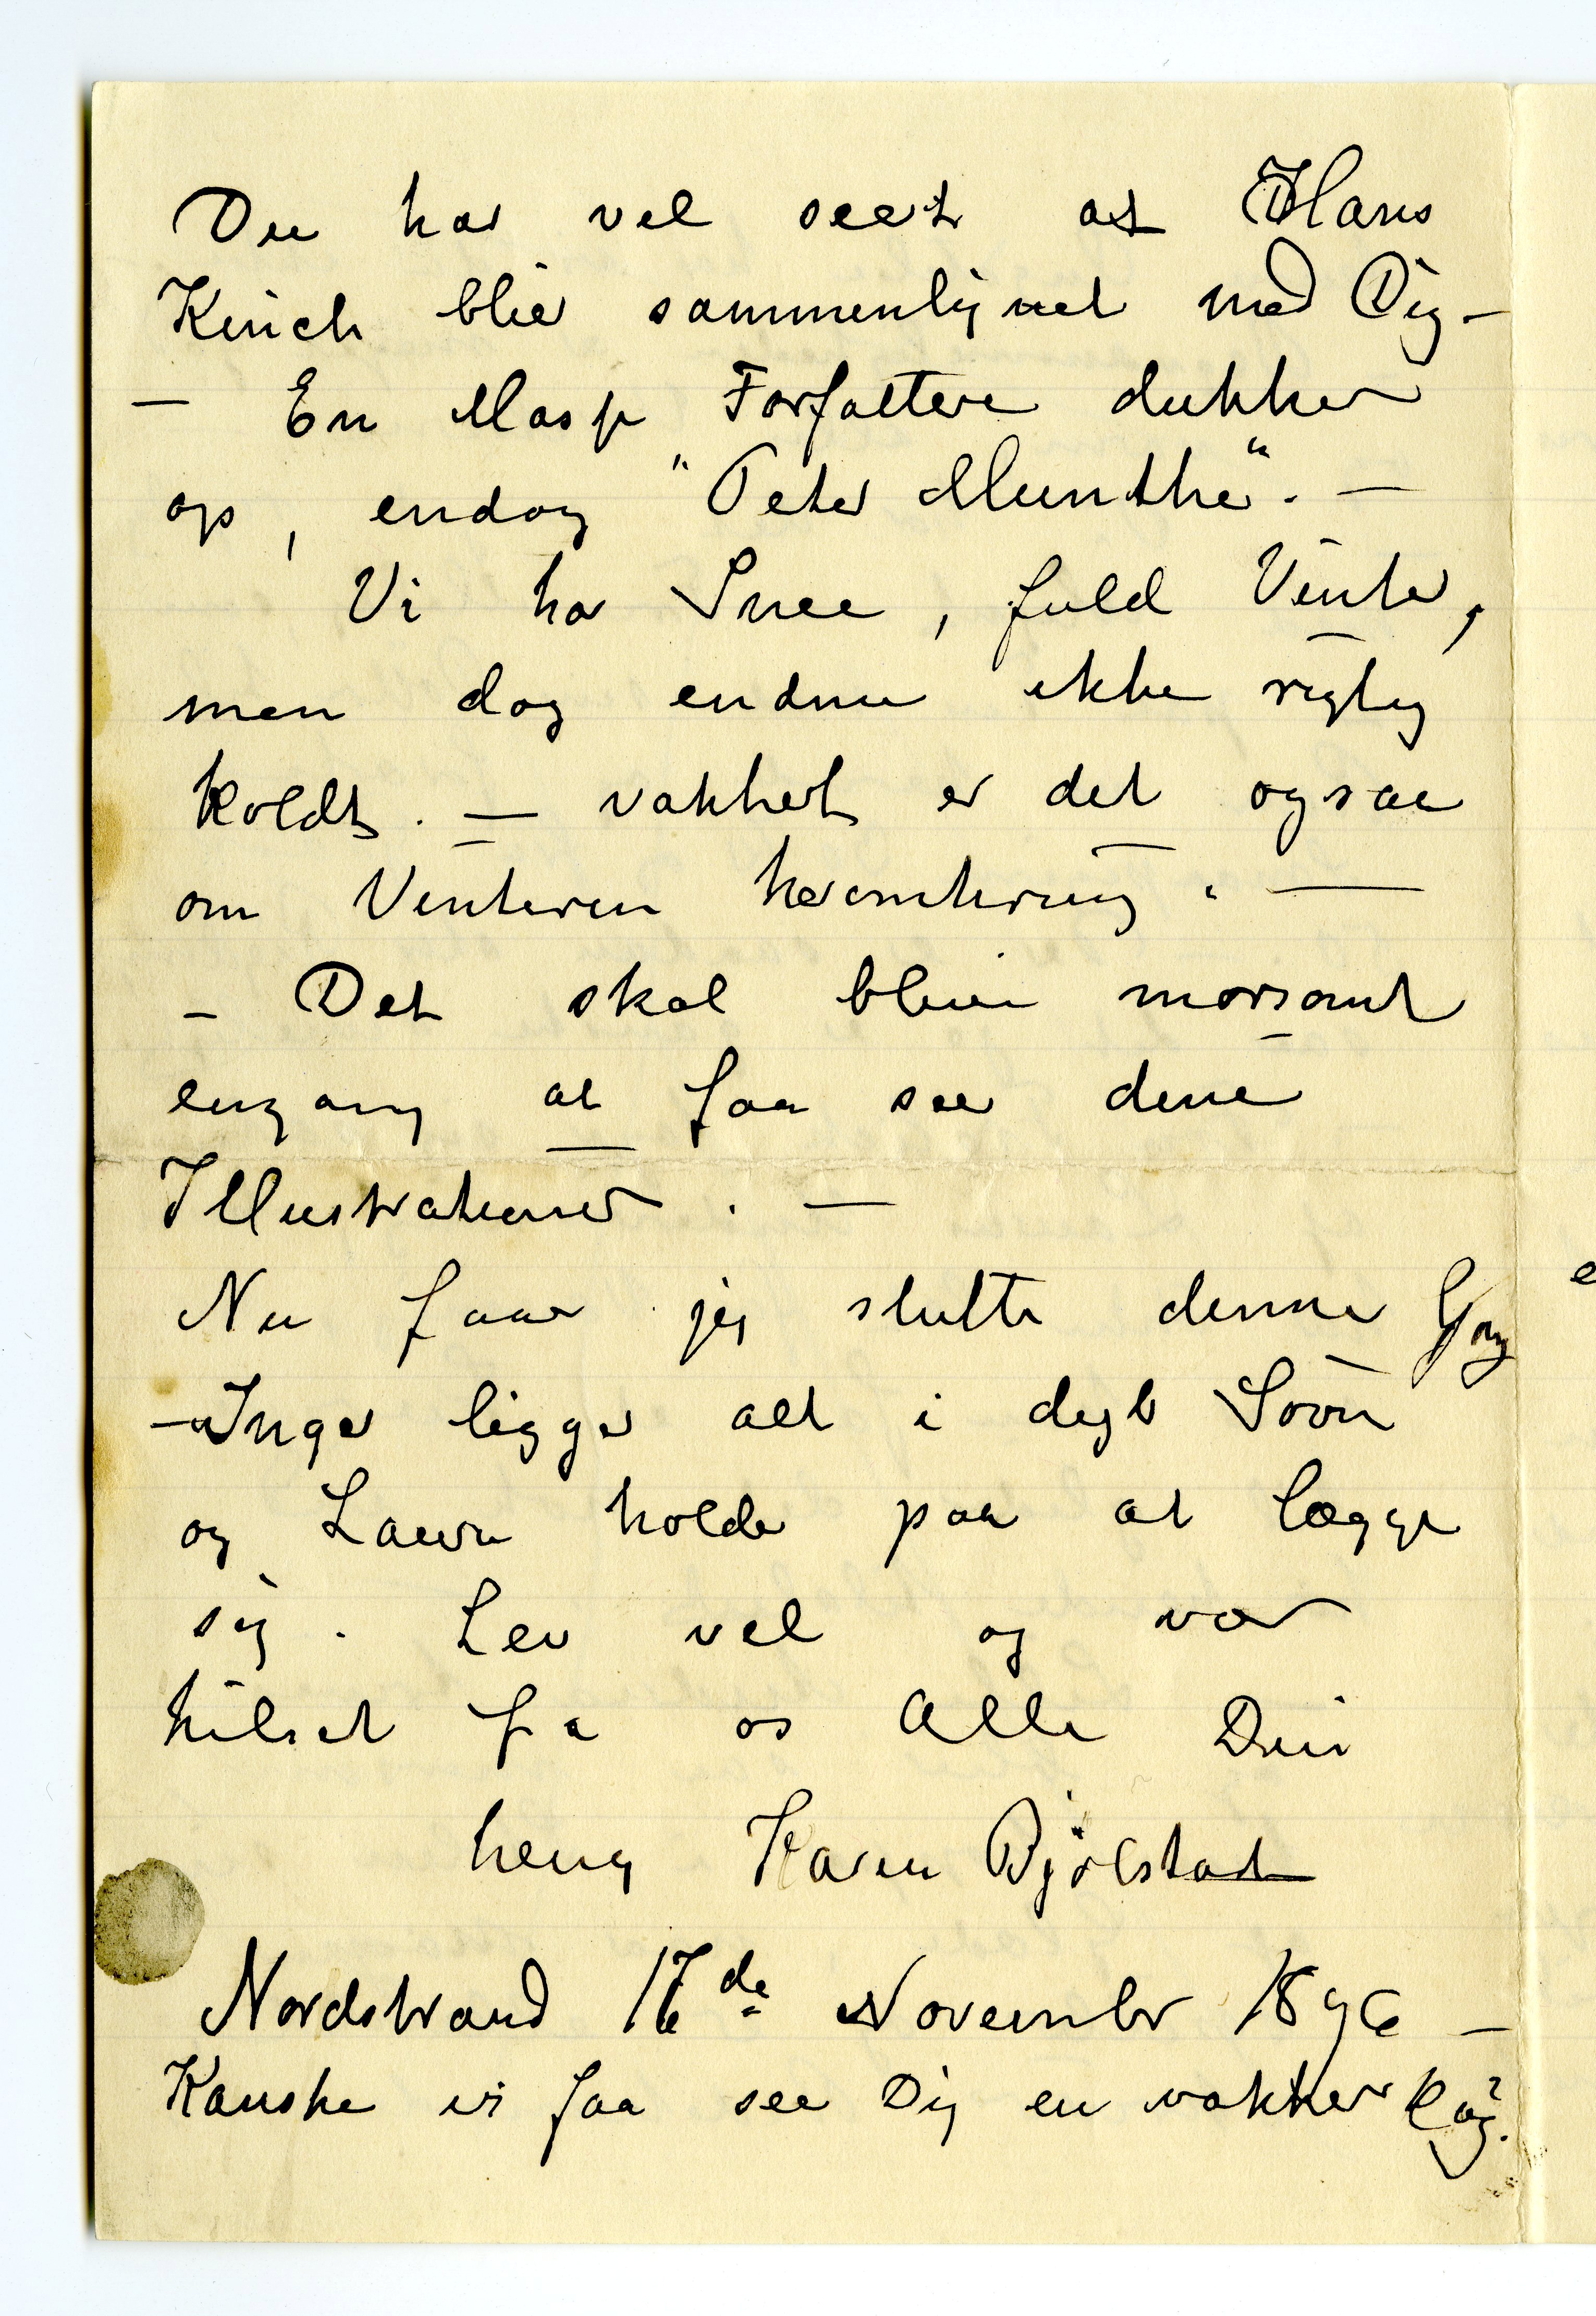 Du har vel seet at Hans
Kinch blier sammenlignet med Dig –
– En Masse Forfattere dukker
op, endog "Peter Munthe". –
Vi ha Snee, fuld Vinter,
men dog endnu ikke rigtig
koldt. – vakkert er det ogsaa
om Vinteren heromkring. –
– Det skal blive morsomt
engang at faa see dine
Illustrationer. –
Nu faar jeg slutte denne Gang
– Inger ligger alt i dyb Søvn
og Laura holder paa at lægge
sig. Lev vel og vær
hilset fra os Alle Din
heng Karen Bjølstad
Nordstrand 17de November 1896 –
Kanske vi faa see Dig en vakker